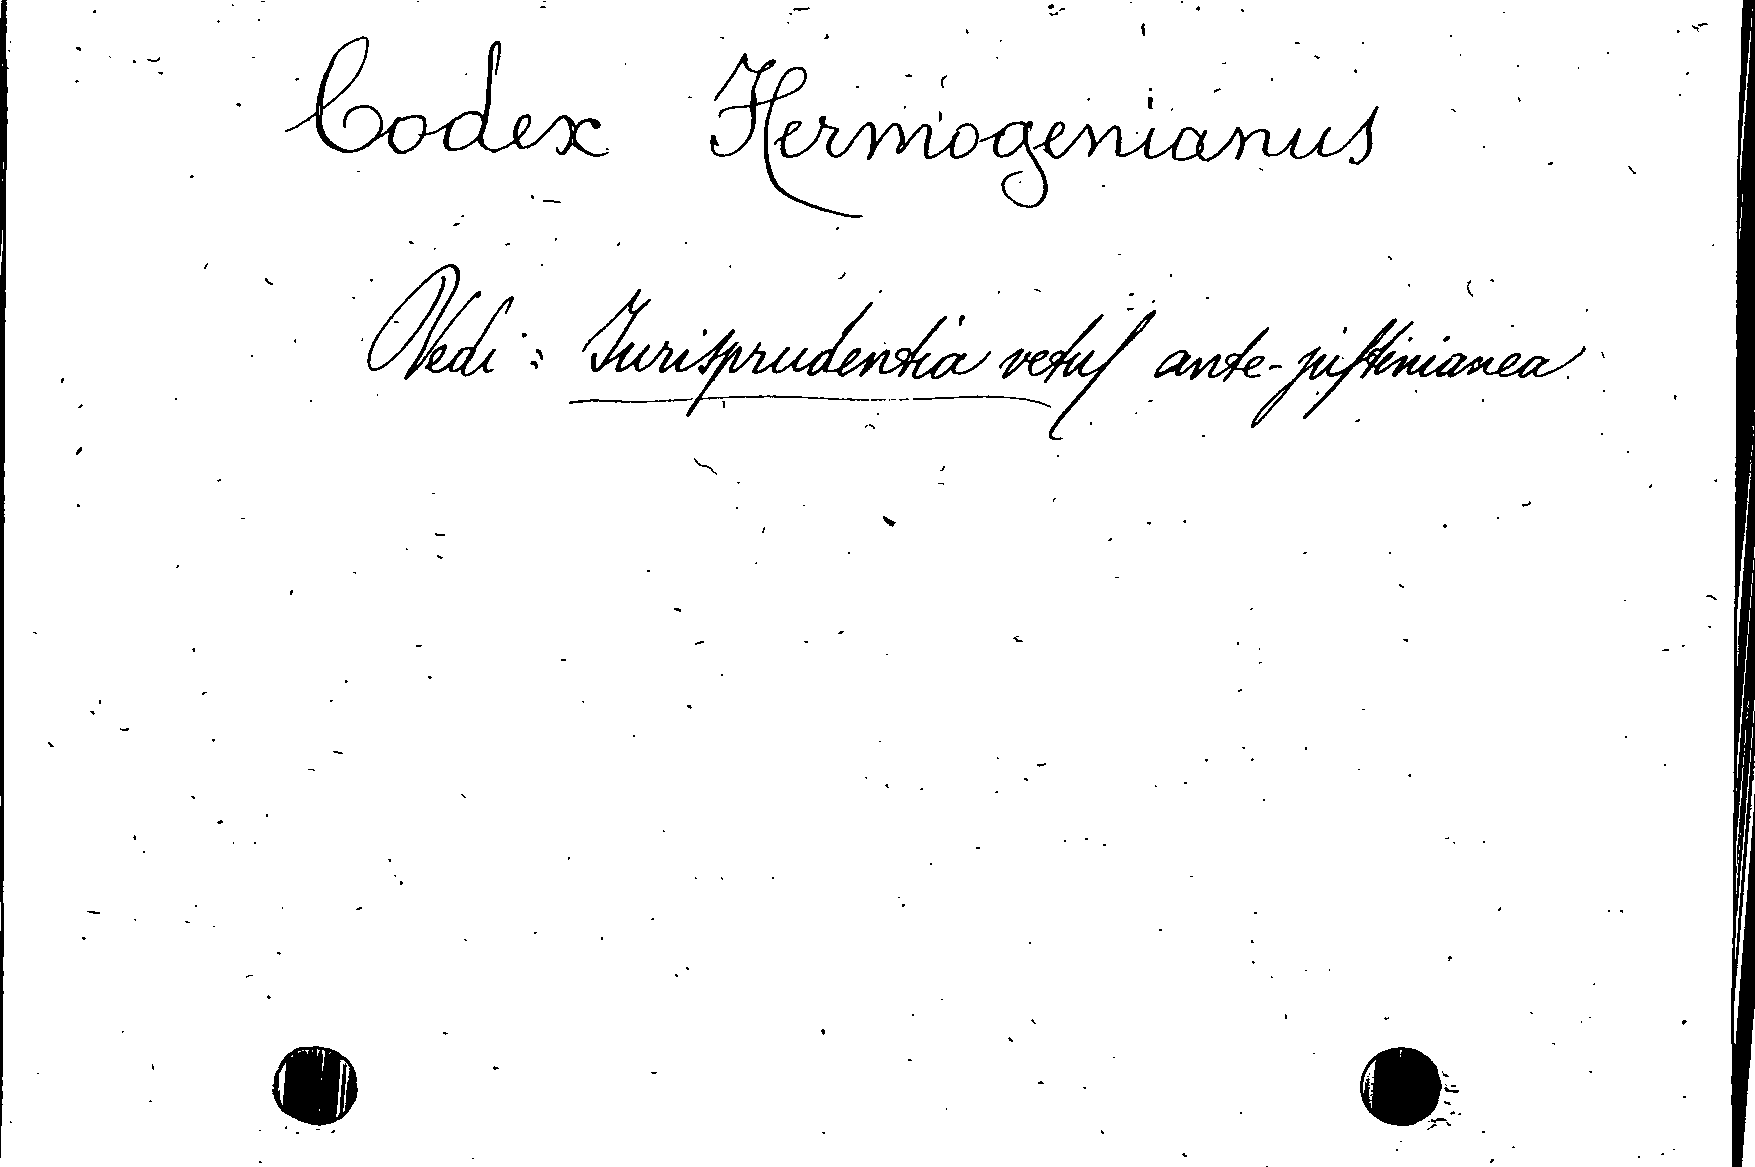 Codex Hermogenianus
Vedi: Jurisprudentia vetus ante-justinianea